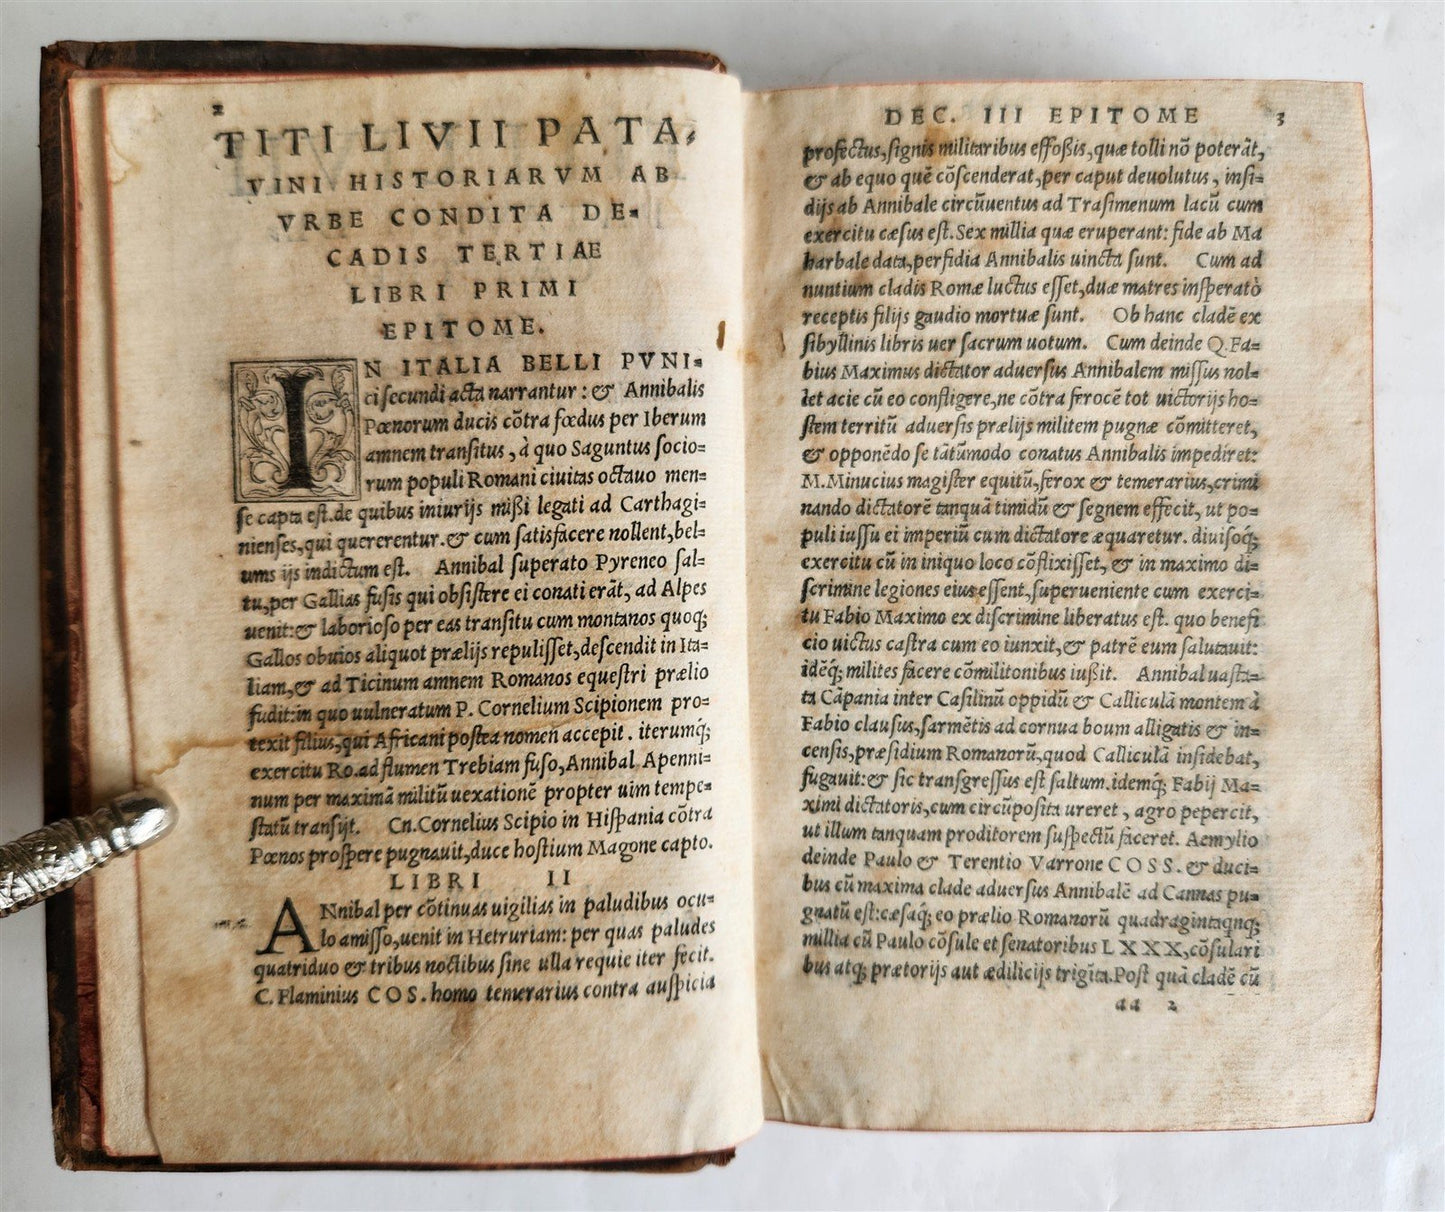 2
TITI LIVII PATA,
VINI HISTORIARVM AB
VRBE CONDITA DE-
CADIS TERTIAE
LIBRI PRIMI
EPITOME.
IN ITALIA BELLI PVNI-
ci secundi acta narrantur: & Annibalis
Pœnorum ducis cõtra fœdus per Iberum
amnem transitus, à quo Saguntus socio-
rum populi Romani ciuitas octauo men-
se capta est. de quibus iniurijs mißi legati ad Carthagi-
nienses, qui quererentur. & cum satisfacere nollent, bel-
lum ijs indictum est. Annibal superato Pyreneo sal-
tu, per Gallias fusis qui obsistere ei conati erãt, ad Alpes
uenit: & laborioso per eas transitu cum montanos quoq;
Gallos obuios aliquot prælijs repulisset, descendit in Ita-
liam, & ad Ticinum amnem Romanos equestri prælio
fudit: in quo uulneratum P. Cornelium Scipionem pro-
texit filius, qui Africani postea nomen accepit. iterumq́;
exercitu Ro. ad flumen Trebiam fuso, Annibal Apenni-
num per maximã militũ uexationẽ propter uim tempe-
statũ transijt. Cn. Cornelius Scipio in Hispania cõtra
Pœnos prospere pugnauit, duce hostium Magone capto.
LIBRI II
ANnibal per cõtinuas uigilias in paludibus ocu-
lo amisso, uenit in Hetruriam: per quas paludes
quatriduo & tribus noctibus sine ulla requie iter fecit.
C. Flaminius COS. homo temerarius contra auspicia
DEC. III EPITOME 3
profectus, signis militaribus effoßis, quæ tolli nõ poterãt,
& ab equo quẽ cõscenderat, per caput deuolutus, insi-
dijs ab Annibale circũuentus ad Trasimenum lacũ cum
exercitu cæsus est. Sex millia quæ eruperant: fide ab Ma
harbale data, perfidia Annibalis uincta sunt. Cum ad
nuntium cladis Romæ luctus esset, duæ matres insperatò
receptis filijs gaudio mortuæ sunt. Ob hanc cladẽ ex
sibyllinis libris uer sacrum uotum. Cum deinde Q. Fa-
bius Maximus dictator aduersus Annibalem missus nol-
let acie cũ eo confligere, ne cõtra ferocẽ tot uictorijs ho-
stem territũ aduersis prælijs militem pugnæ cõmitteret,
& opponẽdo se tãtũmodo conatus Annibalis impediret:
M. Minucius magister equitũ, ferox & temerarius, crimi
nando dictatorẽ tanquã timidũ & segnem effecit, ut po-
puli iussu ei imperiũ cum dictatore æquaretur. diuisoq́;
exercitu cũ in iniquo loco cõflixisset, & in maximo di-
scrimine legiones eius essent, superueniente cum exerci-
tu Fabio Maximo ex discrimine liberatus est. quo benefi
cio uictus castra cum eo iunxit, & patrẽ eum salutauit:
idẽq́; milites facere cõmilitonibus iußit. Annibal uasta-
ta Cãpania inter Casilinũ oppidũ & Calliculã montem à
Fabio clausus, sarmẽtis ad cornua boum alligatis & in-
censis, præsidium Romanorũ, quod Calliculã insidebat,
fugauit: & sic transgressus est saltum. idemq́; Fabij Ma-
ximi dictatoris, cum circũposita ureret, agro pepercit,
ut illum tanquam proditorem suspectũ faceret. Aemylio
deinde Paulo & Terentio Varrone COSS. & duci-
bus cũ maxima clade aduersus Annibalẽ ad Cannas pu-
gnatũ est: cæsaq́; eo prælio Romanorũ quadragintaqnq;
millia cũ Paulo cõsule et senatoribus LXXX, cõsulari
bus atq; prætorijs aut ædilicijs trigĩta. Post quã cladẽ cũ
aa 2